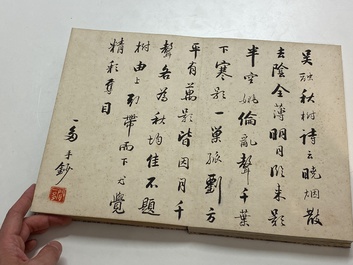 吳融秋樹詩云曉烟散
去陰全薄明月臨來影
半空姚倫亂聲千葉
下寒影一巢孤劉方
平有萬影皆因月千
聲各為秋均佳不題
樹由上引帶而下尤覺
精彩奪目
一多手鈔